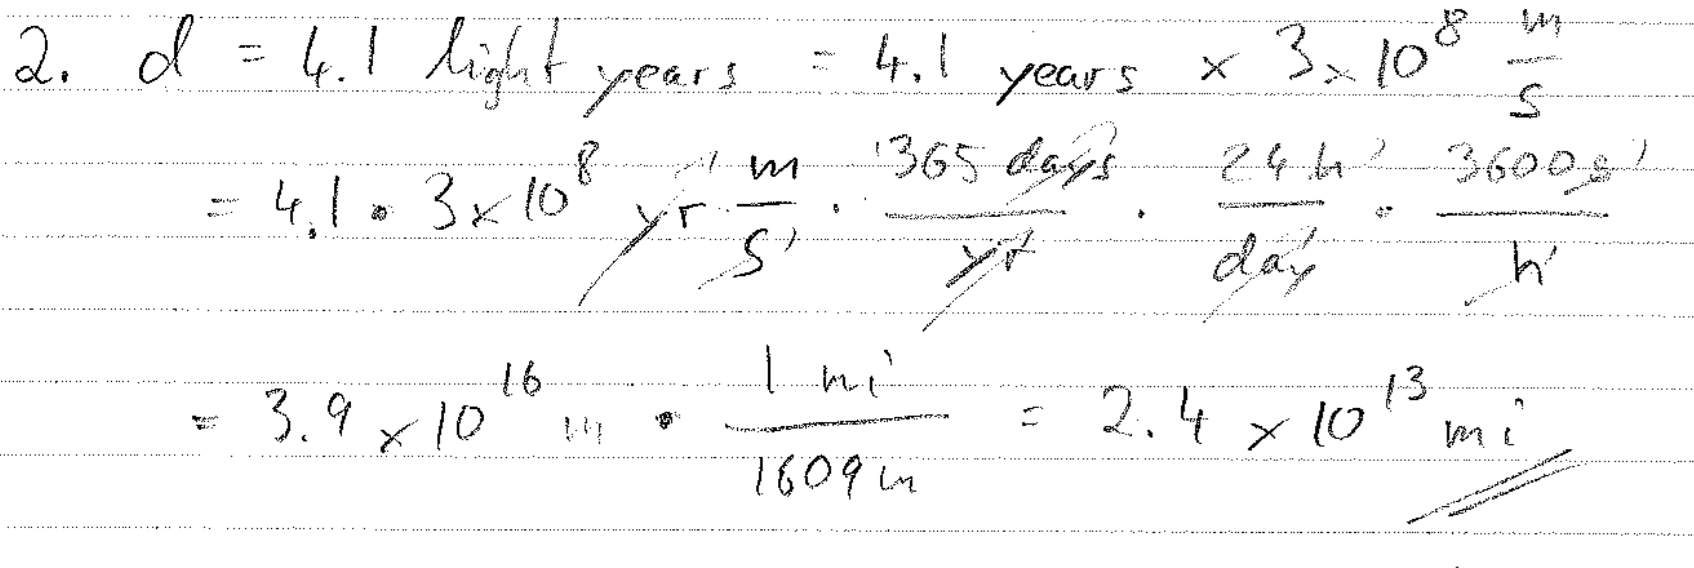 2. d = 4.1 light years = 4.1 years × 3×10^8 m/s
= 4.1 • 3×10^8 yr · m/s · 365 days/yr · 24 h/day • 3600 s/h
= 3.9 × 10^16 m • 1 mi/1609 m = 2.4 × 10^13 mi